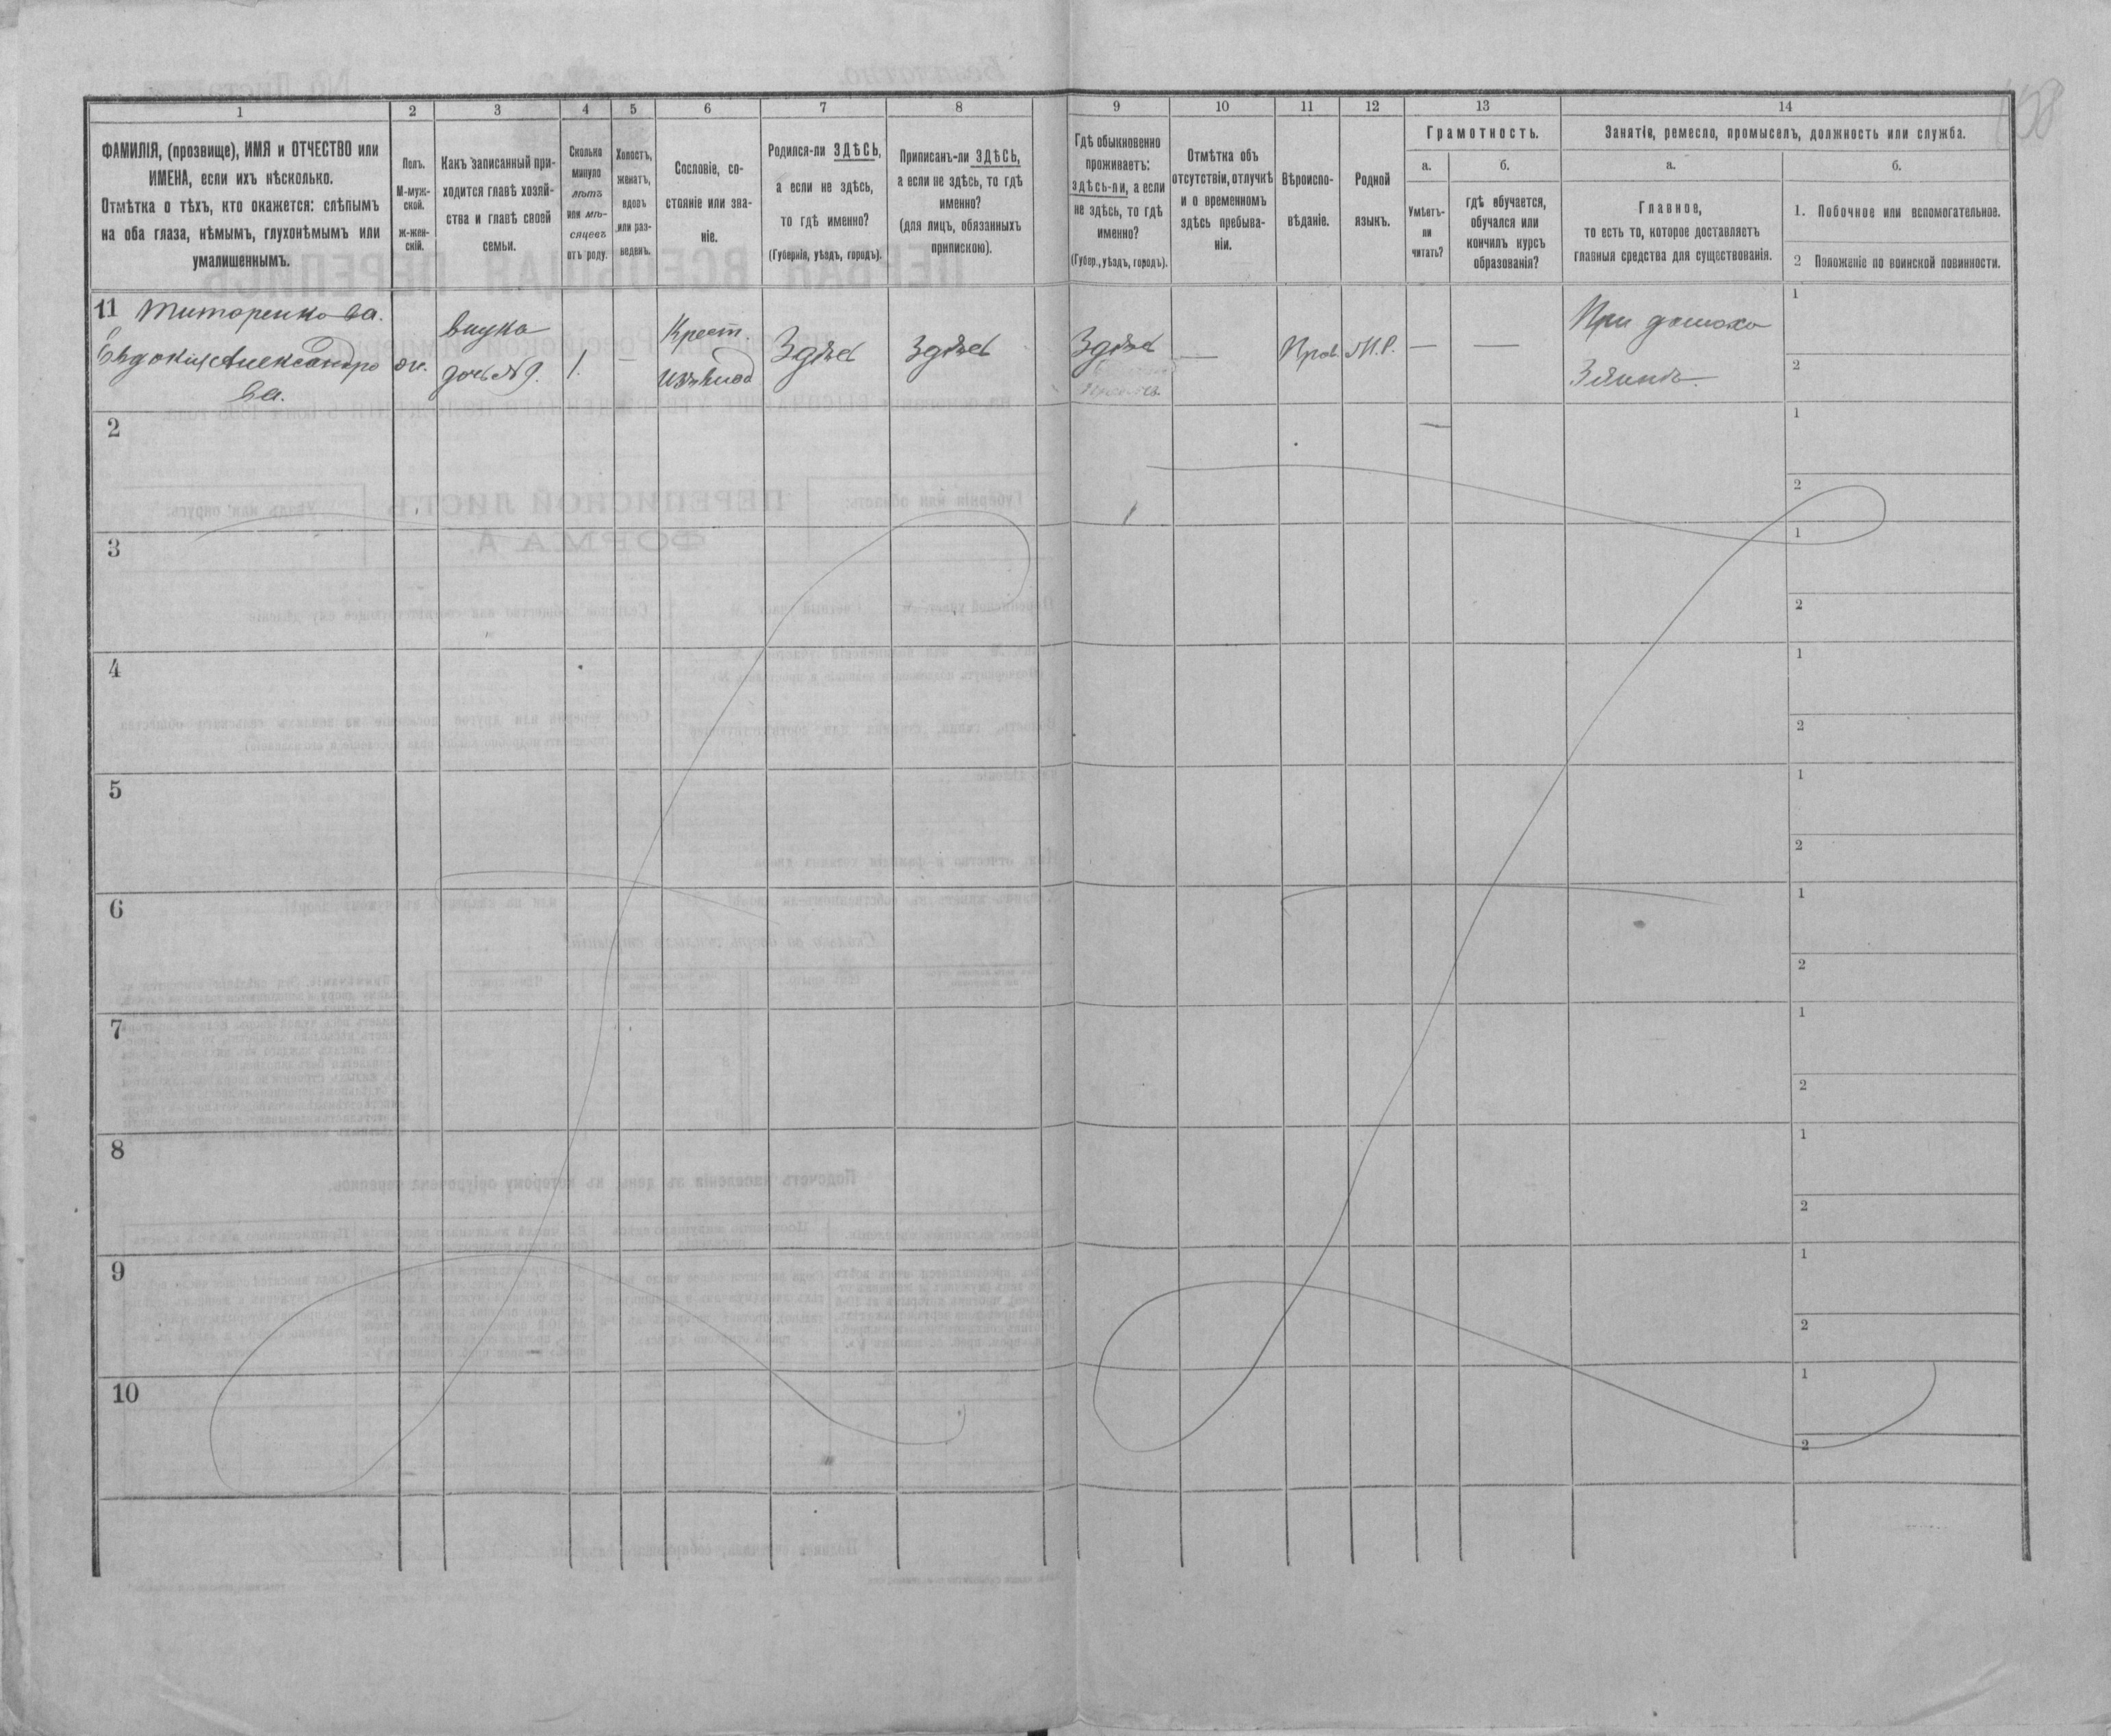 158
1
2
3
4
5
6
7
8
9
10
11
12
13
14
ФАМИЛІЯ, (прозвище), ИМЯ и ОТЧЕСТВО или
ИМЕНА, если ихъ нѣсколько.
Отмѣтка о тѣхъ, кто окажется: слѣпымъ
на оба глаза, нѣмымъ, глухонѣмымъ или
умалишеннымъ.
Полъ.
М-муж-
ской.
ж-жен-
скій.
Какъ записанный при-
ходится главѣ хозяй-
ства и главѣ своей
семьи.
Сколько
минуло
лѣтъ
или мѣ-
сяцевъ
отъ роду.
Холостъ,
женатъ,
вдовъ
или раз-
веденъ.
Сословіе, со-
стояніе или зва-
ніе.
Родился-ли ЗДѢСЬ,
а если не здѣсь,
то гдѣ именно?
(Губернія, уѣздъ, городъ).
Приписанъ-ли ЗДѢСЬ,
а если не здѣсь, то гдѣ
именно?
(для лицъ, обязанныхъ
припискою).
Гдѣ обыкновенно
проживаетъ:
здѣсь-ли, а если
не здѣсь, то гдѣ
именно?
(Губер., уѣздъ, городъ).
Отмѣтка объ
отсутствіи, отлучкѣ
и о временномъ
здѣсь пребыва-
ніи.
Вѣроиспо-
вѣданіе.
Родной
языкъ.
Грамотность.
а.
Умѣетъ-
ли
читать?
б.
гдѣ обучается,
обучался или
кончилъ курсъ
образованія?
Занятіе, ремесло, промыселъ, должность или служба.
а.
Главное,
то есть то, которое доставляетъ
главныя средства для существованія.
б.
1. Побочное или вспомогательное.
2 Положеніе по воинской повинности.
11 Титоренкова.
Евдокия Александро
ва.
ж.
внука
дочь №9.
1.
—
Крест.
изъ влад
Здѣсь
Здѣсь
Здѣсь
—
Прав.
М.Р.
—
—
При
1
2
2
—
1
2
3
1
2
4
1
2
5
1
2
6
1
2
7
1
2
8
1
2
9
1
2
10
1
2